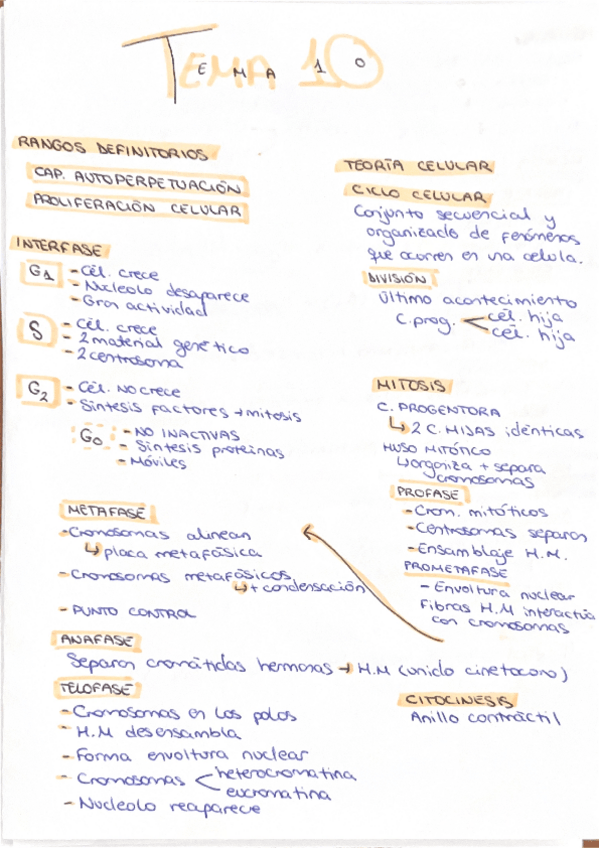 TEMA 10
RANGOS DEFINITORIOS
CAP. AUTOPERPETUACIÓN
PROLIFERACIÓN CELULAR
INTERFASE
G1 - Cél. crece
- Nucleolo desaparece
- Gran actividad
S - Cél. crece
- 2 material genético
- 2 centrosoma
G2 - Cél. NO crece
- Síntesis factores → mitosis
G0 - NO INACTIVAS
- Síntesis proteínas
- Móviles
TEORÍA CELULAR
CICLO CELULAR
Conjunto secuencial y
organizado de fenómenos
que ocurren en una celula.
DIVISIÓN
Último acontecimiento
C.prog. < cél. hija
cél. hija
MITOSIS
C. PROGENTORA
↳ 2 C. HIJAS idénticas
HUSO MITÓTICO
↳ organiza + separa
cromosomas
PROFASE
- Crom. mitóticos
- Centrosomas separan
- Ensamblaje H.M.
PROMETAFASE
- Envoltura nuclear
Fibras H.M interactúa
con cromosomas
METAFASE
- Cromosomas alinean
↳ placa metafásica
- Cromosomas metafásicos
↳ + condensación
- PUNTO CONTROL
ANAFASE
Separan cromátidas hermanas → H.M (unido cinetocoro)
TELOFASE
- Cromosomas en los polos
- H.M desensambla
- Forma envoltura nuclear
- Cromosomas < heterocromatina
eucromatina
- Nucleolo reaparece
CITOCINESIS
Anillo contráctil